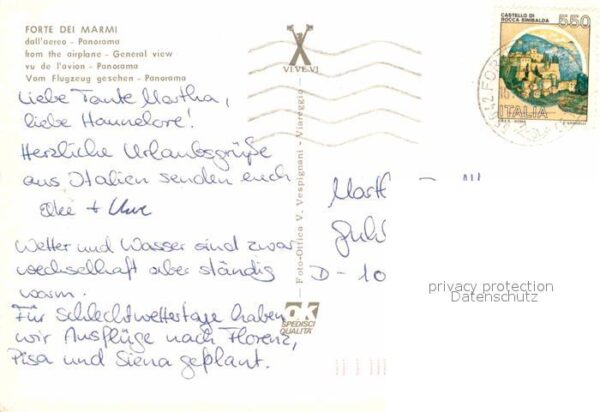 FORTE DEI MARMI
dall'aereo - Panorama
from the airplane - General view
vu de l'avion - Panorama
Vom Flugzeug geschen - Panorama
Liebe Tante Martha,
liebe Hannelore!
Herzliche Urlaubsgrüße
aus Italien senden euch
Elke + Uwe
Wetter und Wasser sind zwar
wechselhaft aber ständig
warm.
Für Schlechtwettertage haben
wir Ausflüge nach Florenz,
Pisa und Siena geplant.
VI.VE.VI
Foto-Ottica V. Vespignani - Viareggio
OK
SPEDISCI
QUALITÀ
CASTELLO DI
ROCCA SINIBALDA
550
ITALIA
D-10
privacy protection
Datenschutz